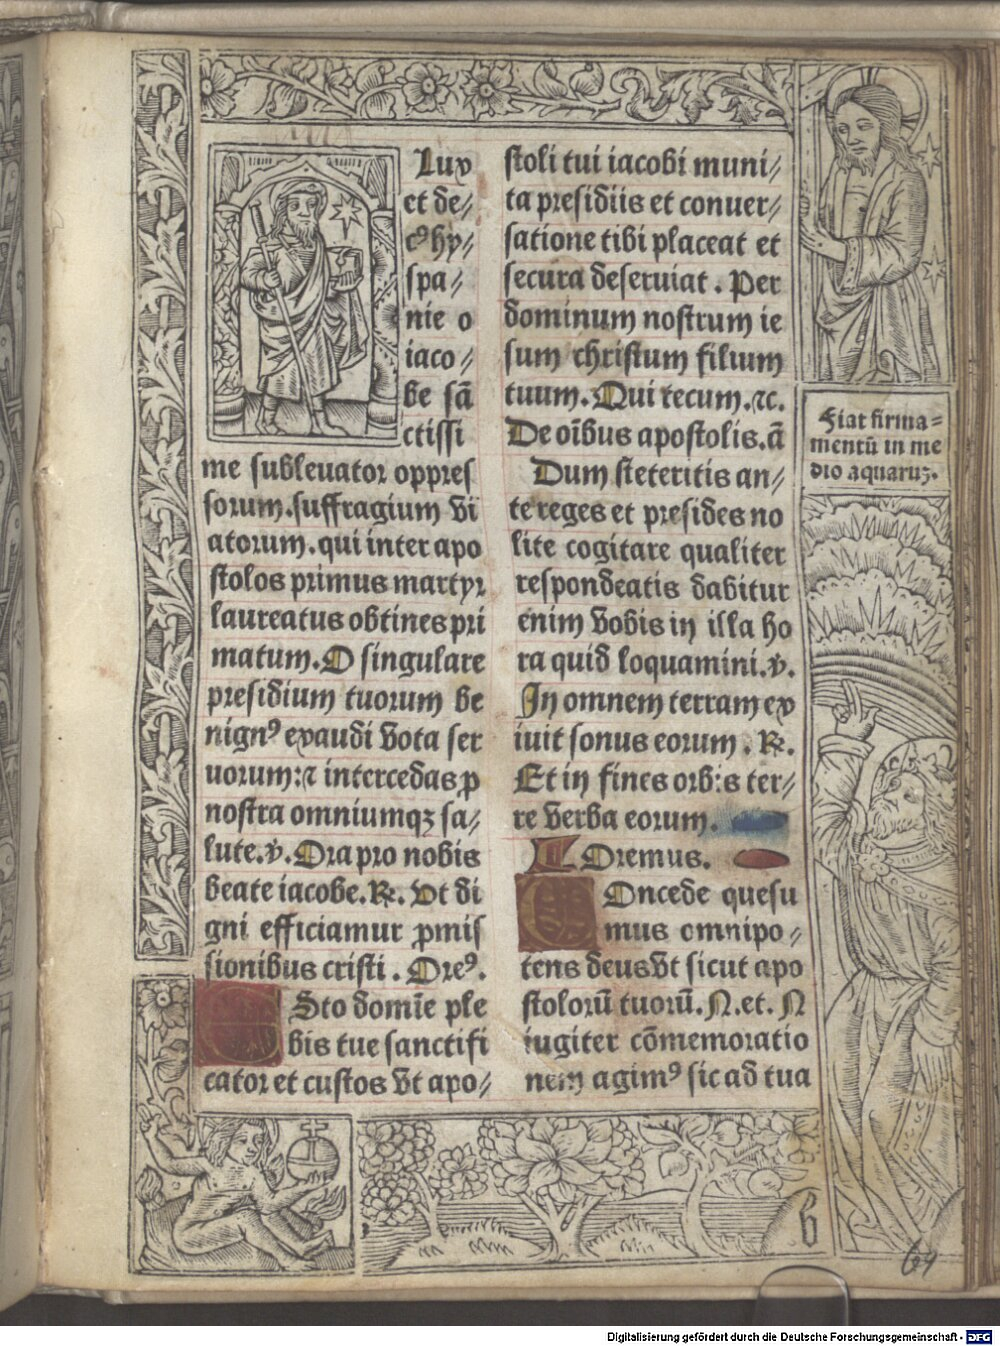 Lux
et de⸗
c⁹ hy⸗
spa⸗
nie o
iaco⸗
be sā
ctissi
me subleuator oppres
sorum.suffragium vi
atorum.qui inter apo
stolos primus martyr
laureatus obtines pri
matum.O singulare
presidium tuorum be
nign⁹ exaudi vota ser
uorum:⁊ intercedas ꝓ
nostra omniumqꝫ sa⸗
lute.℣.Ora pro nobis
beate iacobe.℟.Vt di
gni efficiamur ꝓmis
sionibus cristi.Ore⁹.
ESto domīe ple
bis tue sanctifi
cator et custos vt apo⸗
stoli tui iacobi muni⸗
ta presidiis et conuer⸗
satione tibi placeat et
secura deseruiat. Per
dominum nostrum ie
sum christum filium
tuum.Qui tecum.⁊c.
De oībus apostolis.ā
Dum steteritis an⸗
te reges et presides no
lite cogitare qualiter
respondeatis dabitur
enim vobis in illa ho
ra quid loquamini.℣.
In omnem terram ex
iuit sonus eorum.℟.
Et in fines orbis ter⸗
re verba eorum.
Oremus.
COncede quesu
mus omnipo⸗
tens deus vt sicut apo
stolorū tuorū.N.et.N
iugiter cōmemoratio
nem agim⁹ sic ad tua
Fiat firma=
mentū in me
dio aquaruꝫ.
b
64
Digitalisierung gefördert durch die Deutsche Forschungsgemeinschaft - DFG